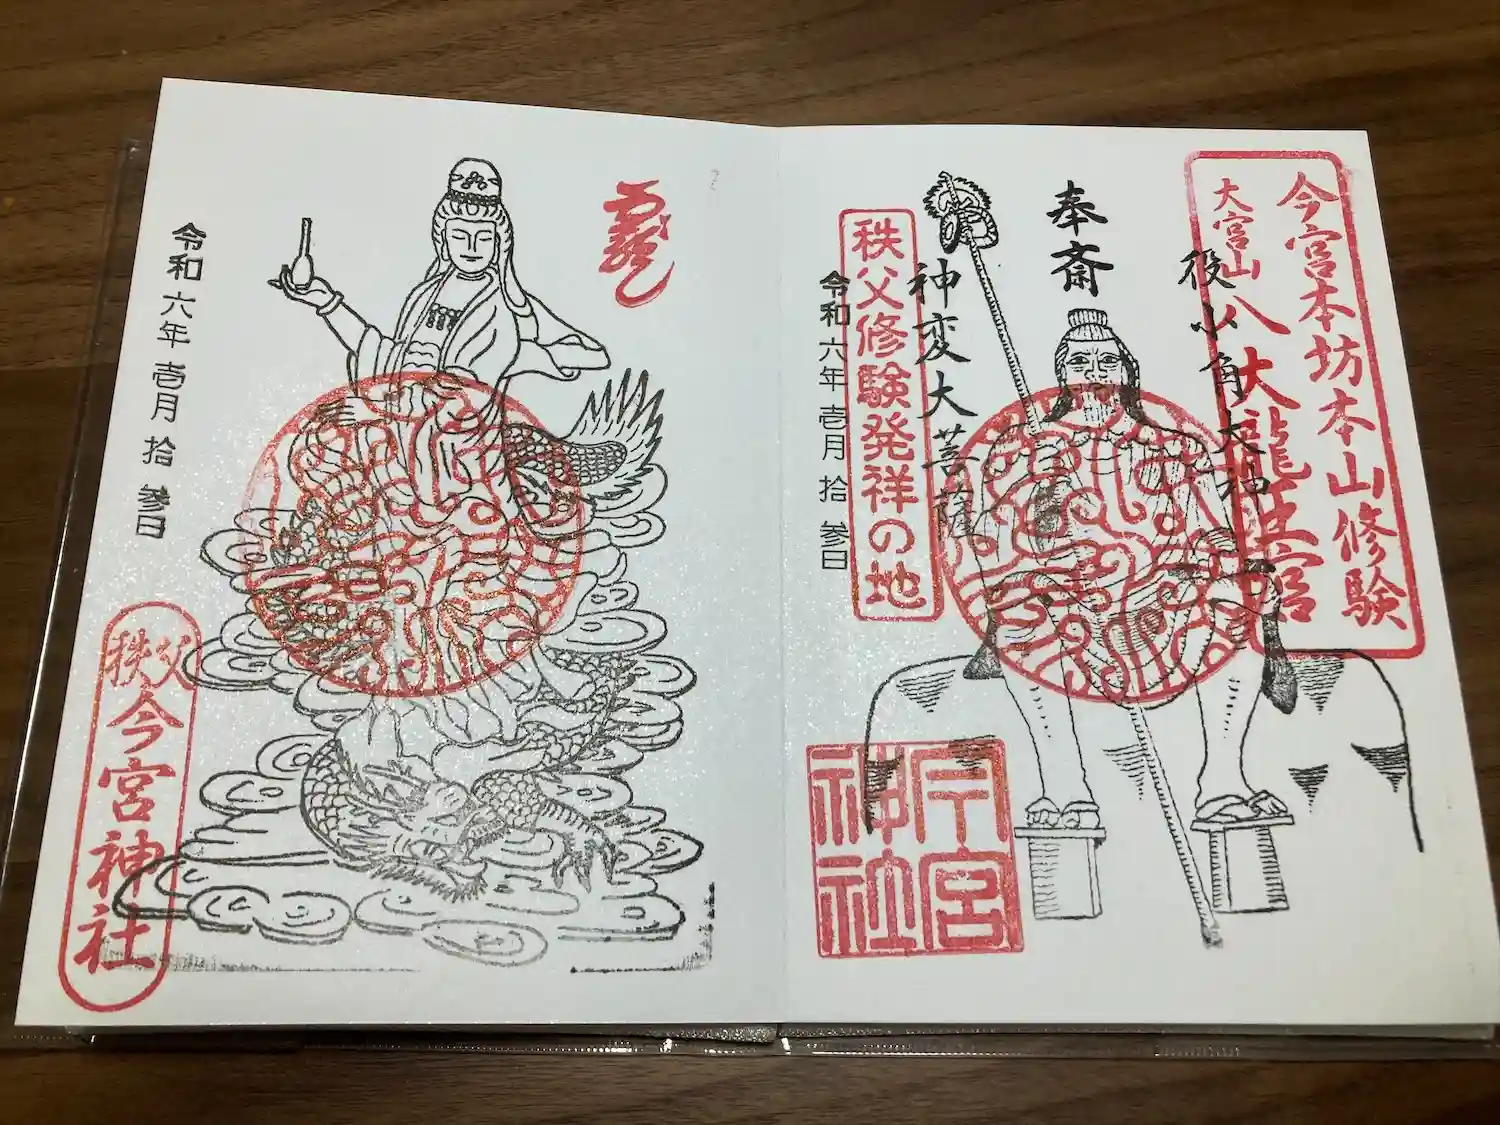 今宮本坊本山修験
大宮山八大龍王宮
役小角大神
奉斎
神変大菩薩
秩父修験発祥の地
令和六年壱月拾参日
今宮神社
令和六年壱月拾参日
秩父今宮神社